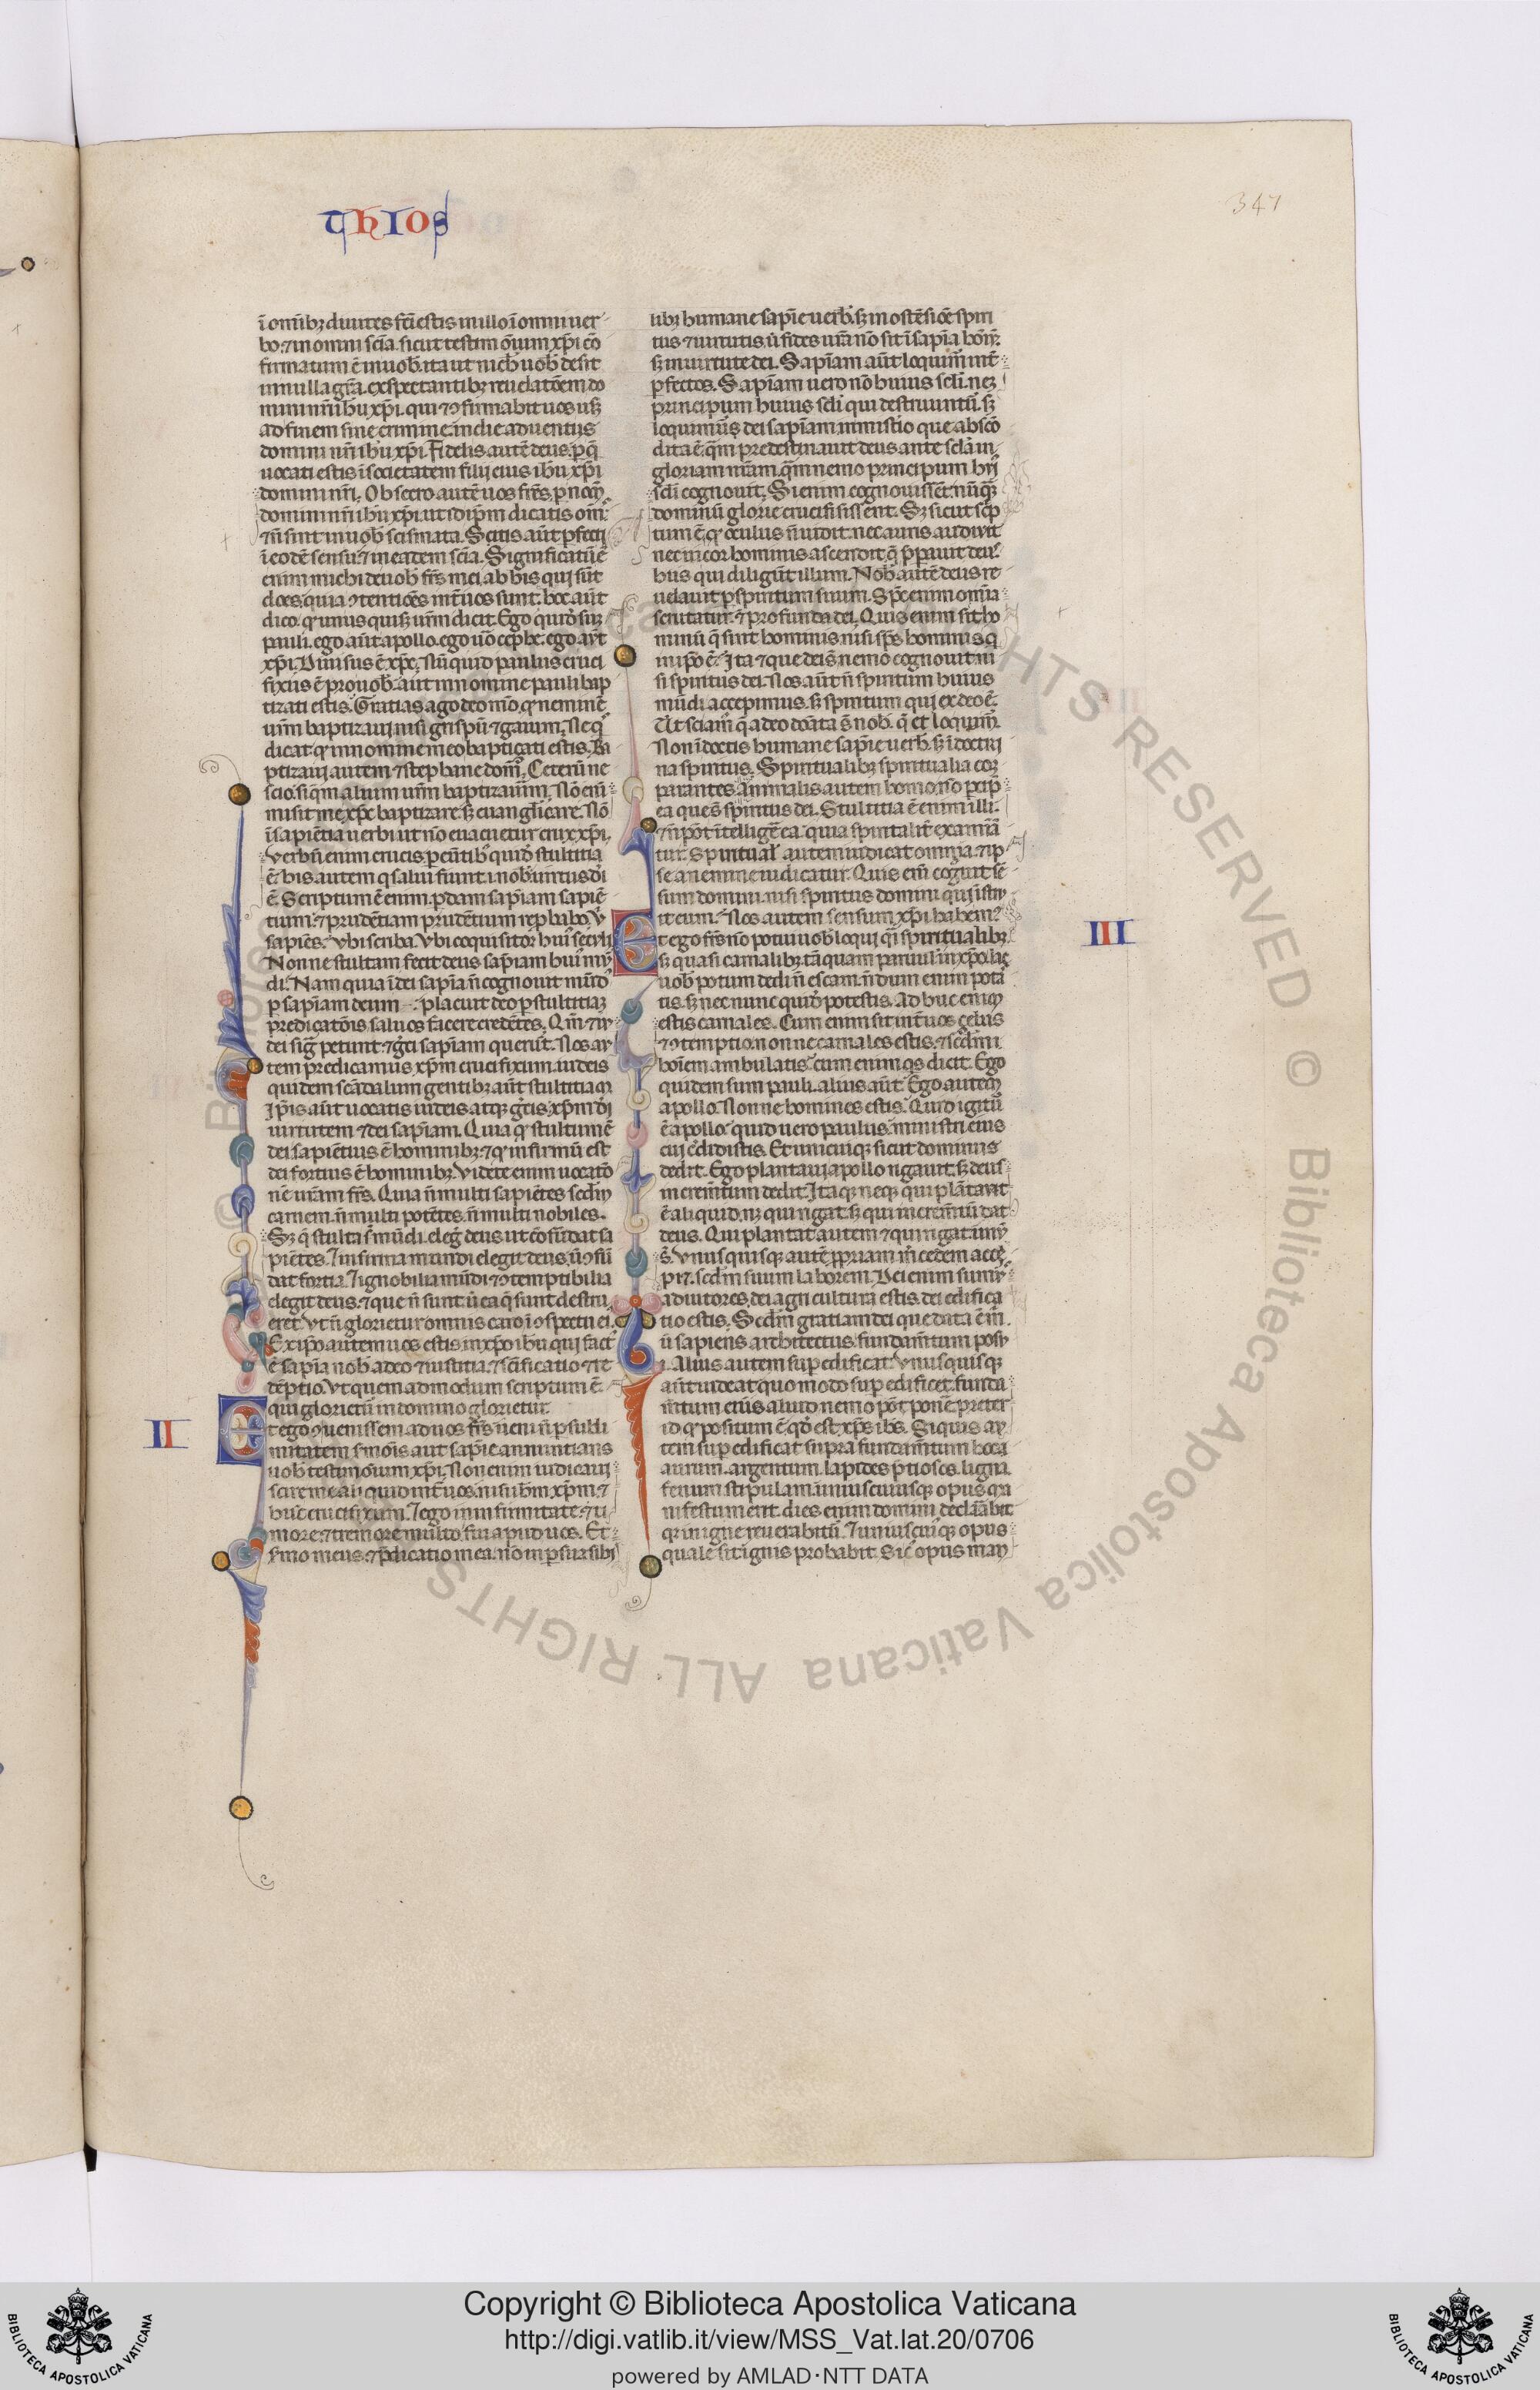 thios
347
i omnibꝫ diuites fc̄i estis in illo i omni uer
bo. ⁊ in omni sc̄ia. sicut testimōium xp̄i cō
firmatum ē in uob̄. ita ut nich̄ uob̄ desit
in nulla gr̄a. exspectantibꝫ reuelatōem do
mini nr̄i ih̄u xp̄i. qui ⁊ ꝯfirmabit uos usꝫ
ad finem sine crimine. in die aduentus
domini nr̄i ih̄u xp̄i. Fidelis autē deus. ꝑ q̄
uocati estis i societatem filij eius ih̄u xp̄i
domini nr̄i. Obsecro autē uos fr̄es. ꝑ nom̄
domini nr̄i ih̄u xp̄i. ut idip̄m dicatis om̄s
⁊ n̄ sint in uob̄ scismata. Sitis aūt ꝑfecti
i eodē sensu. ⁊ in eadem sc̄ia. Significatū ē
enim michi de uob̄ fr̄s mei. ab his qui sūt
cloes. quia ꝯtentiōes int̄ uos sunt. hoc aūt
dico. ꝙ unus quisꝫ ur̄m dicit. Ego quid̄ sum
pauli. ego aūt apollo. ego uō cephe. ego aūt
xp̄i. Diuisus ē xp̄c. Nūquid paulus cruci
fixus ē pro uob̄. aut in nomine pauli bap
tizati estis. Gratias ago deo m̄o. ꝙ neminē
ur̄m baptizaui nisi crispū ⁊ gaium. Ne q̄s
dicat ꝙ in nomine meo baptiçati estis. Ba
ptizaui autem ⁊ stephane domū. Ceterū ne
scio. si q̄m alium ur̄m baptizauim. Nō eni
misit me xp̄c baptizare. sꝫ euanglicare. Nō
i sapiētia uerbi. ut nō euacuetur crux xp̄i.
Verbū enim crucis. ꝑeūtibꝰ quid̄ stultitia
ē. his autem q̄ salui fiunt. i. nob̄ uirtus di
ē. Scriptum ē enim. ꝑdam sapiam sapiē
tium. ⁊ prudētiam prudētium reꝓbabo. V̄
sapiēs. Vbi scriba. Vbi ꝯquisitor huiꝰ seculi
Nonne stultam fecit deus sap̄iam huiꝰ mū
di. Nam quia i dei sap̄ia n̄ cognouit mūdꝰ
ꝑ sap̄iam deum placuit deo ꝑ stultitiaꝫ
predicatōis saluos facere credētes. Qm̄ ⁊ iu
dei siḡ petunt. ⁊ gr̄ci sap̄iam querūt. Nos au
tem predicamus xp̄m crucifixum. iudeis
quidem scādalum gentibꝫ aūt stultitiam
Ip̄is aūt uocatis iudeis atqꝫ gr̄cis. xp̄m di
uirtutem ⁊ dei sap̄iam. Quia ꝙ stultum ē
dei sapiētius ē hominibꝫ. ⁊ ꝙ infirmū est
dei fortius ē hominibꝫ. Videte enim uocatō
nē ur̄am fr̄s. Quia n̄ multi sapiētes scd̄m
carnem. n̄ multi potētes. n̄ multi nobiles.
Sꝫ q̄ stulta s̄ mūdi. eleḡ deus ut cōfūdat sa
piētes. ⁊ infirma mundi elegit deus. ut ꝯfū
dat fortia. ⁊ ignobilia mūdi ⁊ ꝯtemptibilia
elegit deus. ⁊ que n̄ sunt. ut ea q̄ sunt destru
eret. Vt n̄ glorietur omnis caro i ꝯspectu eiꝰ
Ex ip̄o autem uos estis in xp̄o ih̄u qui factꝰ
ē sap̄ia nob̄ a deo ⁊ iustitia. ⁊ sc̄ificatio ⁊ re
dēptio. Vt quem admodum scriptum ē.
qui glorietur in domino glorietur.
II
Et ego ꝯuenissem ad uos fr̄s ueni n̄ ꝑ subli
mitatem s̄mōis aut sap̄ie annuntians
uob̄ testimōium xp̄i. Non enim iudicaui
scire me aliquid int̄ uos. nisi ih̄m xp̄m ⁊
hūc crucifixum. ⁊ ego in infirmitate. ⁊ ti
more. ⁊ tremore multo fui apud uos. Et
s̄mo meus. ⁊ p̄dicatio mea. nō in ꝑsuasibi
libꝫ humane sap̄ie uerb̄. sꝫ in ostēsiōe spiri
tus ⁊ uirtutis. ut fides ur̄a nō sit i sapia hoīm.
sꝫ in uirtute dei. Sap̄iam aūt loquim̄ int̄
ꝑfectos. Sap̄iam uero nō huius scl̄i. neqꝫ
principum huius scl̄i qui destruuntur. sꝫ
loquimur dei sap̄iam in misterio que abscō
dita ē. q̄m predestinauit deus ante scl̄a in
gloriam nr̄am. q̄m nemo principum huiꝰ
scl̄i cognouit. Si enim cognouissēt. nūq̄ꝫ
dominū glorie crucifixissent. Sꝫ sicut scrip
tum ē. ꝙ oculus n̄ uidit. nec auris audiuit
nec in cor hominis ascendit. q̄ p̄parauit deus
hiis qui diligūt illum. Nob̄ autē deus re
uelauit ꝑ spiritum suum. Sp̄c enim omīa
scrutatur. ⁊ profunda dei. Quis enim sit ho
minū q̄ sunt hominis nisi sp̄s hominis q̄
in ip̄o ē. Ita ⁊ que dei s̄ nemo cognouit ni
si spiritus dei. Nos aūt n̄ spiritum huius
mūdi accepimus. sꝫ spiritum qui ex deo ē.
Ut sciam̄ q̄ a deo dōata s̄ nob̄. q̄ et loquim̄
Non i doctis humane sap̄ie uerb̄. sꝫ i doctri
na spiritus. Spiritualibꝫ spiritualia com
parantes. Animalis autem homo nō ꝑcip̄
ea que s̄ spiritus dei. Stultitia ē enim illi.
⁊ n̄ pōt intelligē ea. quia spiritalit̄ examīa
tur. Spiritual̄ autem iudicat omnia. ⁊ ip
se a nemine iudicatur. Quis enī cogūit sē
sum domini. nisi spiritus domini qui istru
it eum. Nos autem sensum xp̄i habemꝰ
III
Et ego fr̄s nō potui uob̄ loqui q̄i spiritualibꝫ
sꝫ quasi carnalibꝫ. tāquam paruul̄ in xp̄o. lac
uob̄ potum dedi. n̄ escam. n̄dum enim pote
tis. sꝫ nec nunc quid̄ potestis. Ad huc enim
estis carnales. Cum enim sit int̄ uos çelus
⁊ ꝯtemptio. nonne carnales estis. ⁊ scd̄m
hoīem ambulatis. cum enim q̄s dicit. Ego
quidem sum pauli. alius aūt. Ego autem
apollo. Nonne homines estis. Quid igitur
ē apollo. quid uero paulus. ministri eius
cui c̄didistis. Et unicuiqꝫ sicut dominus
dedit. Ego plantaui apollo rigauit. sꝫ deus
increm̄tum dedit. Itaqꝫ neqꝫ qui plātauit
ē aliquid. nqꝫ qui rigat. sꝫ qui increm̄tū dat
deus. Qui plantat autem ⁊ qui rigat. unū
s̄. Vnus quisqꝫ autē ꝓpriam m̄cedem acci
piet. scd̄m suum laborem. Dei enim sumꝰ
adiutores. dei agri cultura estis. dei edifica
tio estis. Scd̄m gratiam dei que data ē m̄.
ut sapiens architectus. fundam̄tum posu
i. Alius autem suꝑ edificat. Vnus quisqꝫ
aūt uideat quo modo suꝑ edificet. funda
m̄tum enis aliud nemo pōt ponē. preter
id ꝙ positum ē. qd̄ est xp̄s ih̄s. Si quis au
tem suꝑ edificat supra fundam̄tum hoc.
aurum. argentum. lapides p̄tiosos. ligna.
fenum. stipulam. uniuscuiusqꝫ opus ma
nifestum erit. dies enim domini declarabit
qr̄ in igne reuelabitur. ⁊ uniuscuiꝰqꝫ opus
quale sit ignis probabit. Si cꝰ opus man
Copyright © Biblioteca Apostolica Vaticana
http://digi.vatlib.it/view/MSS_Vat.lat.20/0706
powered by AMLAD·NTT DATA
BIBLIOTECA APOSTOLICA VATICANA
BIBLIOTECA APOSTOLICA VATICANA
© Biblioteca Apostolica Vaticana ALL RIGHTS RESERVED